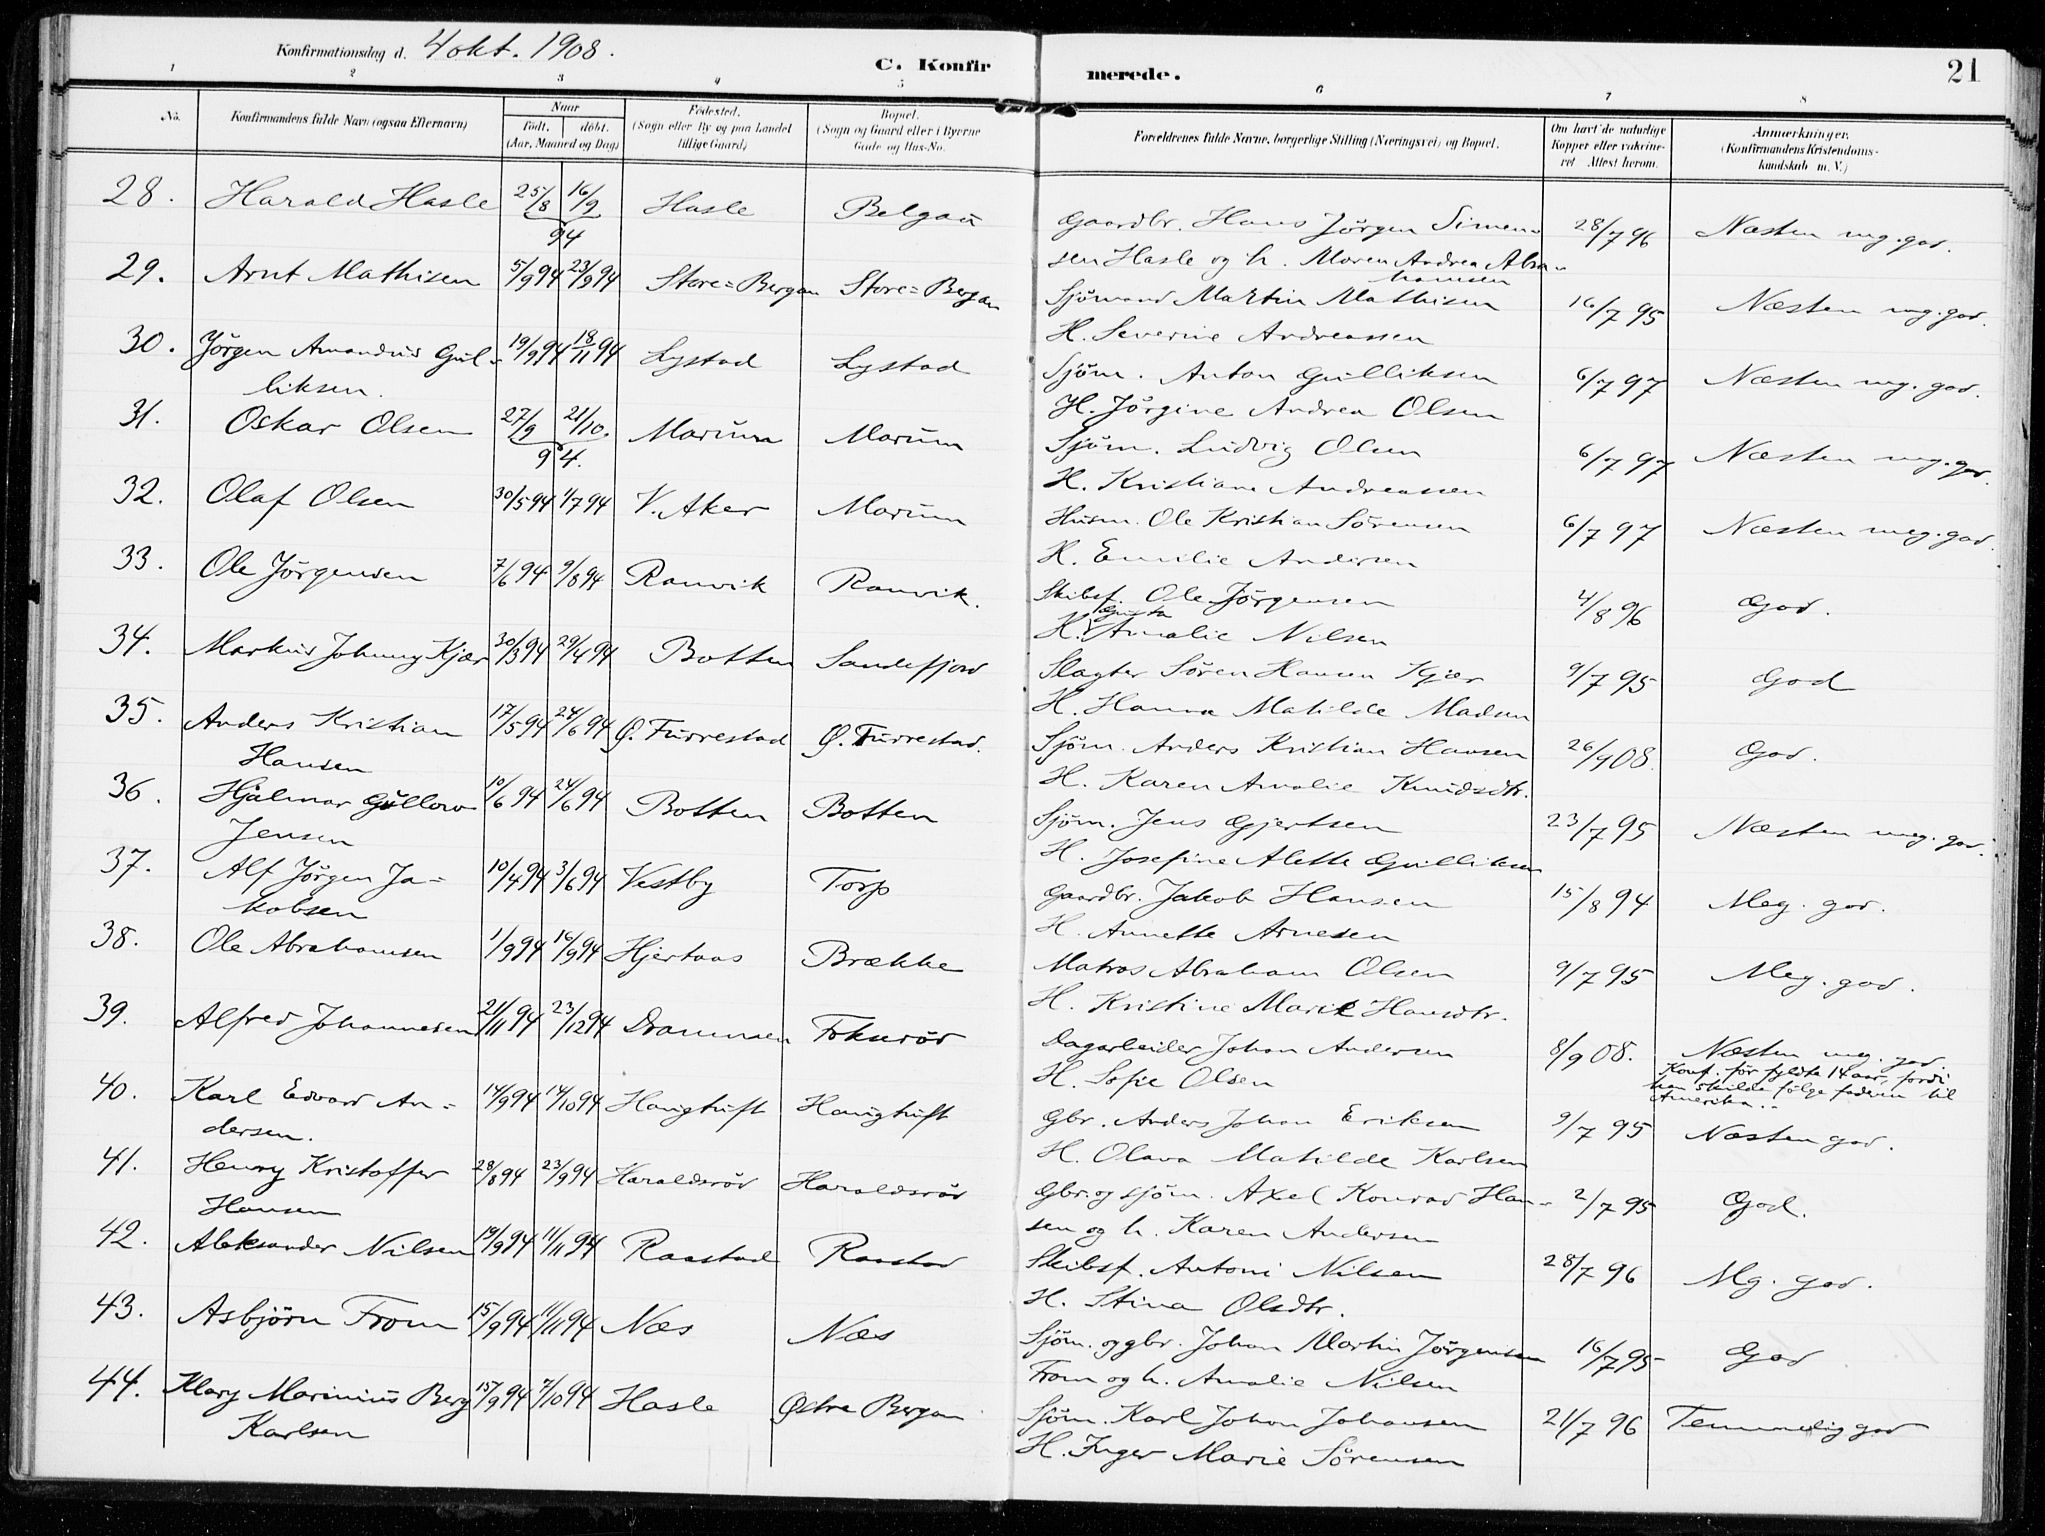 Konfirmationsdag d. 4 okt. 1908.
C. Konfirmerede.
21
1 2 3 4 5 6 7 8
No.
Konfirmandens fulde Navn (ogsaa Efternavn)
Naar
Födt. döbt.
(Aar, Maaned og Dag)
Födested.
(Sogn eller By og paa Landet
tillige Gaard)
Bopæl.
(Sogn og Gaard eller i Byerne
Gade og Hus-No.
Forældrenes fulde Navne, borgerlige Stilling (Næringsvei) og Bopæl.
Om havt de naturlige
Kopper eller vaksine-
ret Attest herom.
Anmærkninger.
(Konfirmandens Kristendoms-
kundskab m. V.)
28. Harald Hasle 25/8 16/9 94 Hasle Belgau Gaardbr. Hans Jørgen Simen- 28/7 96 Næsten mg. god.
sen Hasle og h. Maren Andrea Abra-
hamsen
29. Arnt Mathisen 5/9 94 23/9 94 Store=Bergan Store=Bergan Sjömand Martin Mathisen 16/7 95 Næsten mg. god.
H. Severine Andreassen
30. Jörgen Amandus Gul- 19/9 94 18/11 94 Lystad Lystad Sjöm. Anton Gulliksen 6/7 97 Næsten mg. god.
liksen. H. Jörgine Andrea Olsen
31. Oskar Olsen 27/9 21/10 94. Marum Marum Sjöm. Ludvig Olsen 6/7 97 Næsten mg. god.
H. Kristiane Andreassen
32. Olaf Olsen 30/5 94 1/7 94 V. Aker Marum Husm. Ole Kristian Sörensen 6/7 97 Næsten meg. god.
H. Emilie Andersen
33. Ole Jörgensen 7/6 94 9/8 94 Ranvik Ranvik. Skibsf. Ole Jörgensen 4/8 96 God.
H. Gusta Amalie Nilsen
34. Markus Johnny Kjær 30/3 94 29/4 94 Botten Sandefjord Slagter Sören Hansen Kjær 9/7 95 God
H. Hanna Matilde Madsen
35. Anders Kristian 17/5 94 24/6 94 Ø. Furrestad Ø. Furrestad. Sjöm. Anders Kristian Hansen 26/9 08. God.
Hansen H. Karen Amalie Knudsdtr.
36. Hjalmar Gullow 10/6 94 24/6 94 Botten Botten Sjöm. Jens Gjertsen 23/7 95 Næsten meg. god.
Jensen H. Josefine Alette Gulliksen
37. Alf Jörgen Ja- 10/4 94 3/6 94 Vestby Torp Gaardbr. Jakob Hansen 15/8 94 Meg. god.
kobsen H. Annette Arnesen
38. Ole Abrahamsen 1/9 94 16/9 94 Hjertaas Brække Matros Abraham Olsen 9/7 95 Meg. god.
H. Kristine Marie Hansdtr.
39. Alfred Johannesen 21/11 94 23/12 94 Drammen Fokseröd Dagarbeider Johan Andersen 8/9 08. Næsten mg. god.
H. Sofie Olsen Konf. för fyldte 14 aar, fordi
han skulde følge faderen til
Amerika.
40. Karl Edvard An- 14/9 94 14/10 94 Haugtuft Haugtuft Gbr. Anders Johan Eriksen 9/7 95 Næsten god.
dersen. H. Olava Matilde Karlsen
41. Henry Kristoffer 28/8 94 23/9 94 Haraldsröd Haraldsröd Gbr. og sjöm. Axel Konrad Han- 2/7 95 God.
Hansen sen og h. Karen Andersen
42. Aleksander Nilsen 19/9 94 11/11 94 Raastad Raastad Skibsf. Antoni Nilsen 28/7 96 Mg. god.
H. Stina Olsdtr.
43. Asbjörn From 15/9 94 11/11 94 Næs Næs Sjöm. og gbr. Johan Martin Jörgensen 16/7 95 God
From og h. Amalie Nilsen
44. Klary Marinius Berg 15/9 94 7/10 94 Hasle Østre Bergan Sjöm. Karl Johan Johansen 21/7 96 Temmelig god
Karlsen H. Inger Marie Sörensen